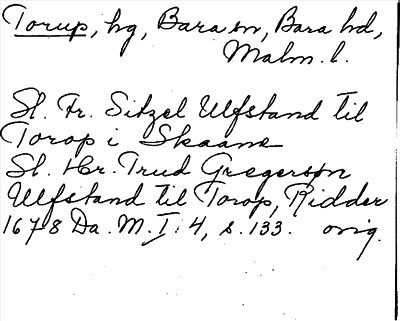 Torup, hg, Bara sn, Bara hd,
Malm. l.
Sl. Fr. Sitzel Ulfstand til
Torop i Skaane
Sl. Hr. Trud Gregerson
Ulfstand til Torop, Ridder
1678 Da. M. I: 4, s. 133. orig.